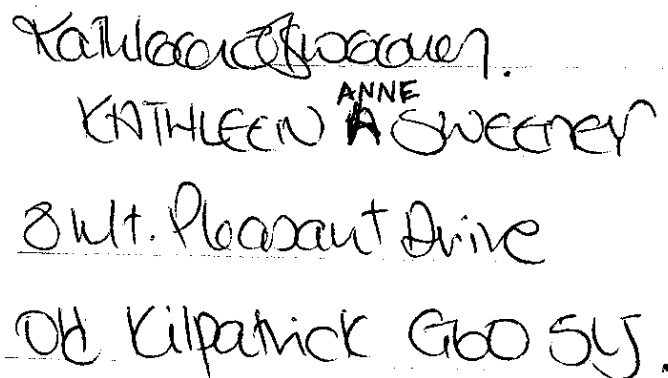 Kathleen A Sweeney.
KATHLEEN ANNE SWEENEY
8 Mt. Pleasant Drive
Old Kilpatrick G60 5LJ.